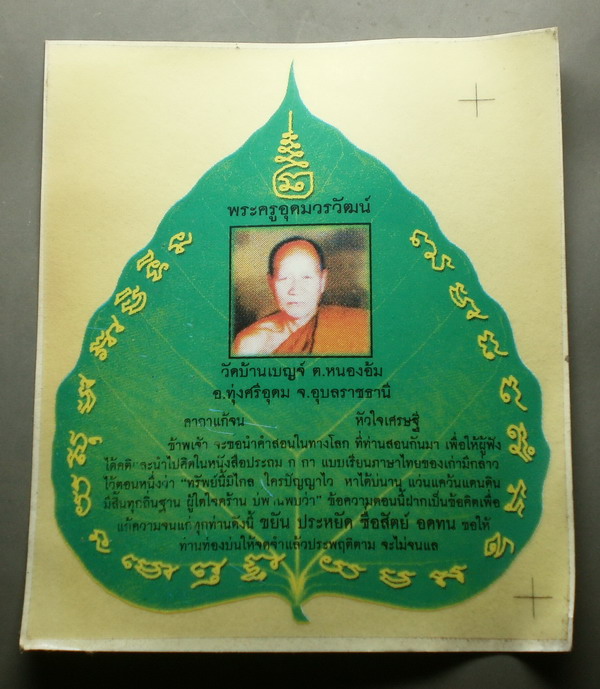 พระครูอุดมวรวัฒน์
วัดบ้านเบญจ์ ต.หนองอ้ม
อ.ทุ่งศรีอุดม จ.อุบลราชธานี
คาถาแก้จน หัวใจเศรษฐี
ข้าพเจ้า จะขอนำคำสอนในทางโลก ที่ท่านสอนกันมา เพื่อให้ผู้ฟัง
ได้คติและนำไปคิดในหนังสือประถม ก กา แบบเรียนภาษาไทยของเก่ามีกล่าว
ไว้ตอนหนึ่งว่า "ทรัพย์นี้มิไกล ใครปัญญาไว หาได้บ่นาน แว่นแคว้นแดนดิน
มีสิ้นทุกถิ่นฐาน ผู้ใดเกียจคร้าน บ่พานพบว่า" ข้อความตอนนี้ฝากเป็นข้อคิดเพื่อ
แก้ความจนแก่ทุกท่านดังนี้ ขยัน ประหยัด ซื่อสัตย์ อดทน ขอให้
ท่านท่องบ่นให้จดจำแล้วประพฤติตาม จะไม่จนแล